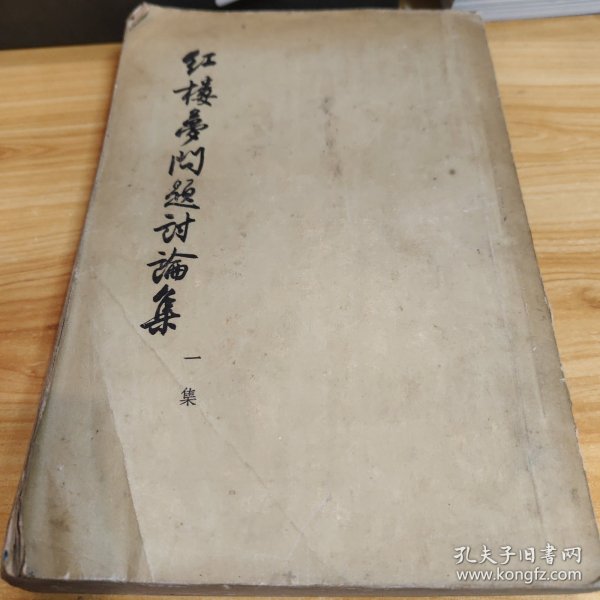 红楼夢问题討論集
一集
孔夫子旧书网
www.kongfz.com